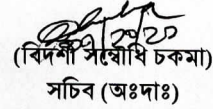 (বিদর্শী সম্বোধি চাকমা)
সচিব (অঃদাঃ)